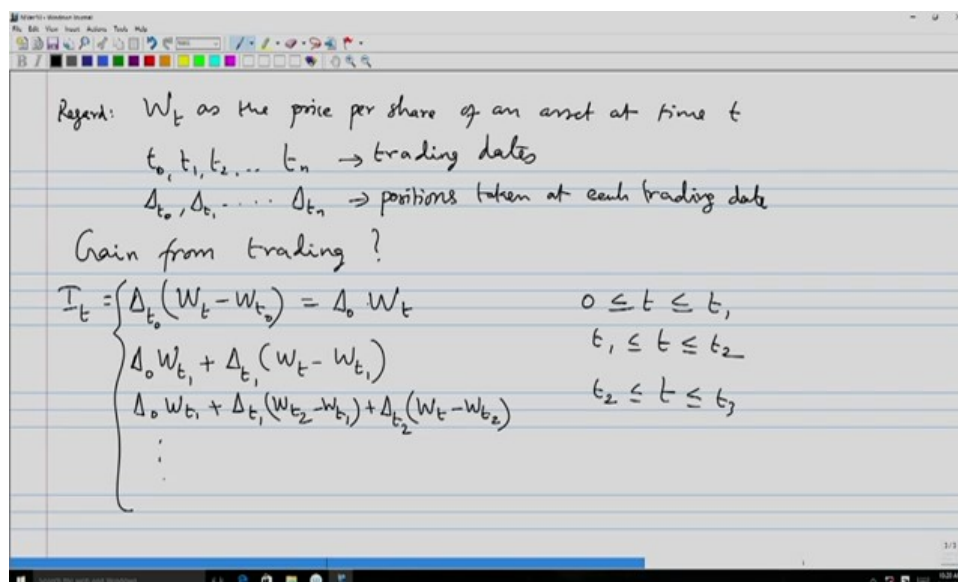 File Edit View Insert Actions Tools Help
B I
Regard: W_t as the price per share of an asset at time t
t_0, t_1, t_2, ... t_n → trading dates
Δ_{t_0}, Δ_{t_1} ..... Δ_{t_n} → positions taken at each trading date
Gain from trading ?
I_t = { Δ_{t_0}(W_t - W_{t_0}) = Δ_0 W_t 0 ≤ t ≤ t_1
Δ_0 W_{t_1} + Δ_{t_1}(W_t - W_{t_1}) t_1 ≤ t ≤ t_2
Δ_0 W_{t_1} + Δ_{t_1}(W_{t_2} - W_{t_1}) + Δ_{t_2}(W_t - W_{t_2}) t_2 ≤ t ≤ t_3
⋮